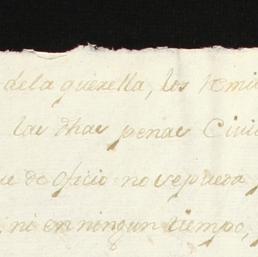 dela querella, los remi
las dhas penas Civi
ue de oficio no se pueda
ni en ningun tiempo,